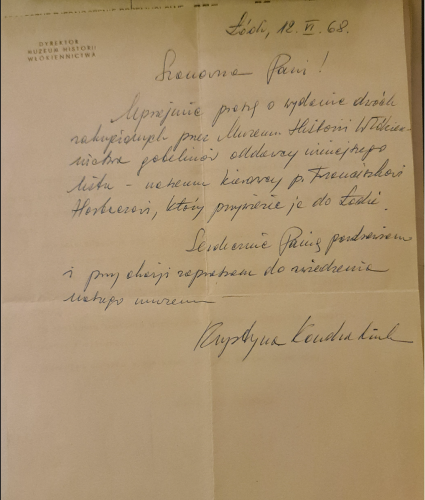 Łódź, 12. VI. 68.
DYREKTOR
MUZEUM HISTORII
WŁÓKIENNICTWA
Szanowna Pani!
Uprzejmie proszę o wydanie dwóch
zakupionych przez Muzeum Historii Włókien-
nictwa gobelinów oddawcy niniejszego
listu – naszemu kierowcy p. Franciszkowi
który przywiezie je do Łodzi.
Serdecznie Panią pozdrawiam
i przy okazji zapraszam do zwiedzenia
naszego muzeum –
Krystyna Kondratiuk